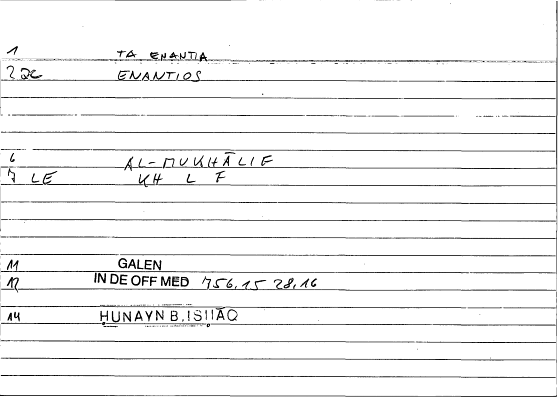 1 TA ENANTIA
2 ENANTIOS
6 AL-MUKHĀLIF
7 LE KH L F
11 GALEN
12 IN DE OFF MED 756,15 28,16
14 ḤUNAYN B. ISḤĀQ